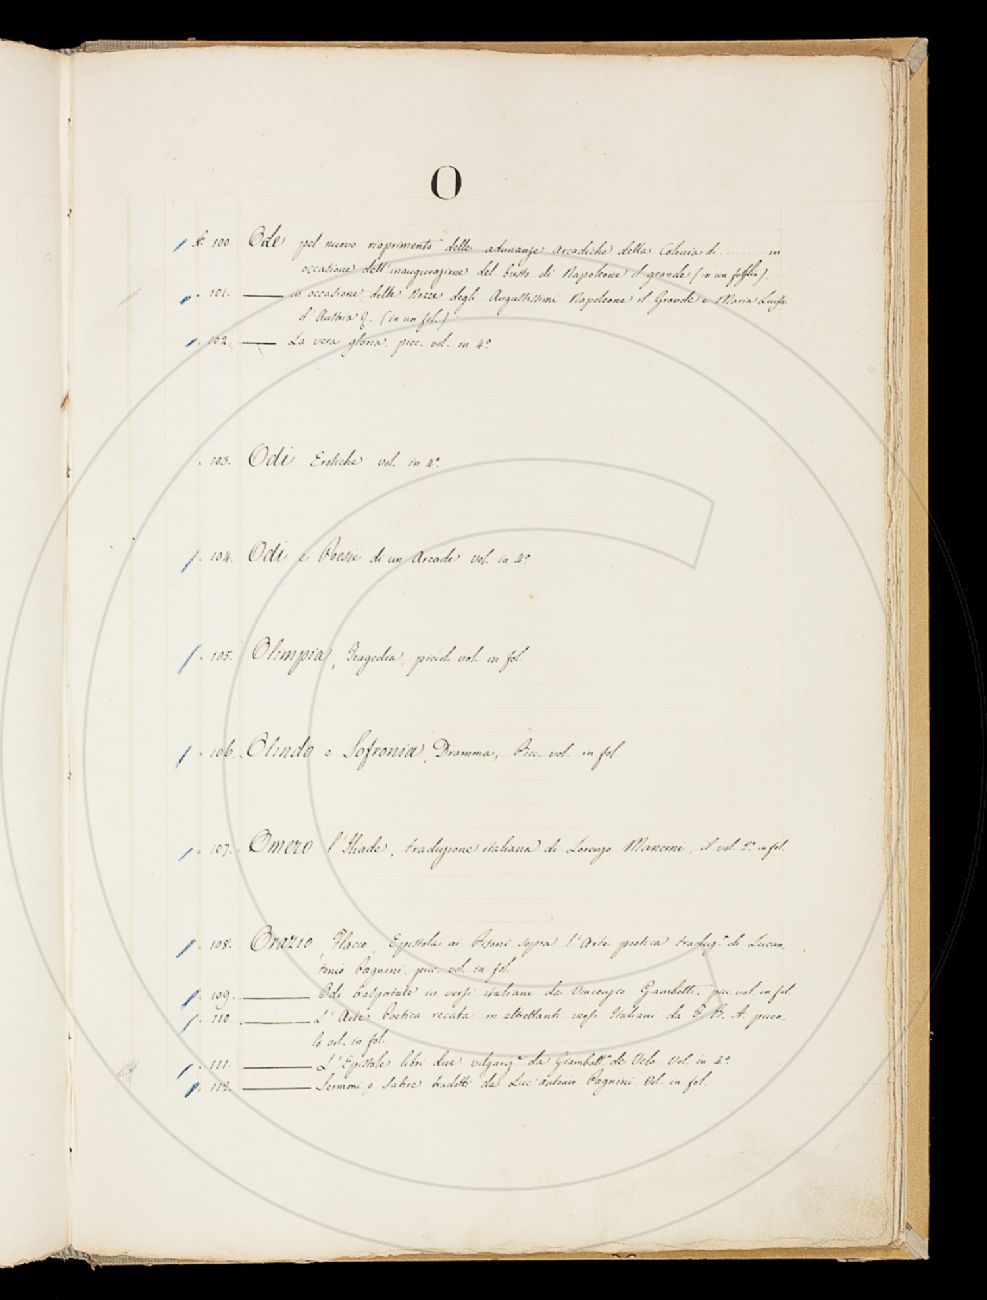 O
N. 100. Ode pel nuovo riaprimento delle adunanze Arcadiche della Colonia di ........ in
occasione dell'inaugurazione del busto di Napoleone il grande (in un foglio).
" 101. —— in occasione delle Nozze degli Augustissimi Napoleone il Grande e Maria Luisa
d'Austria &. (in un fol.)
" 102. —— La vera gloria. picc. vol. in 4.º
" 103. Odi Erotiche vol. in 4.º
" 104. Odi e Poesie di un Arcade vol. in 4.º
" 105. Olimpia, Tragedia, picciol. vol. in fol.
" 106. Olindo e Sofronia, Dramma, Picc. vol. in fol.
" 107. Omero l'Iliade, traduzione italiana di Lorenzo Mancini, il vol. 2.º in fol.
" 108. Orazio, Flacco, Epistola ai Pisoni sopra l'Arte poetica traduz.e di Lucan
tonio Pagnini. picc. vol. in fol.
" 109. —— Odi trasportate in versi italiani da Vincenzo Gambelli. picc. vol. in fol.
" 110. —— L'Arte Poetica recata in altrettanti versi Italiani da P. B. A. picco
lo vol. in fol.
" 111. —— L'Epistole libri due volgariz.e da Giambatt. di Velo. Vol. in 4.º
" 112. —— Sermoni o Satire tradotti da Luc'Antonio Pagnini. Vol. in fol.